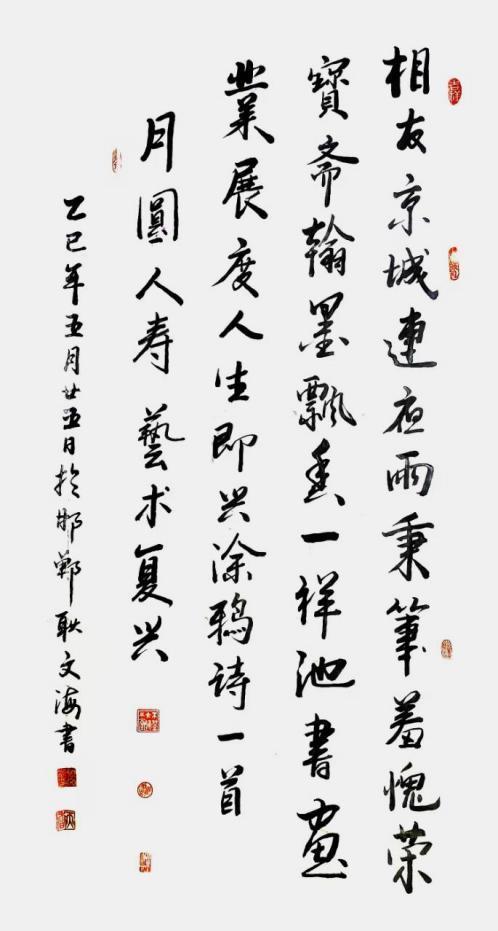 相友京城連夜雨秉筆羞愧荣
寶斋翰墨飄香一祥池書畫
業展度人生即兴涂鸦詩一首
月圓人寿藝术复兴
乙巳年五月廿五日於邯鄲耿文海書